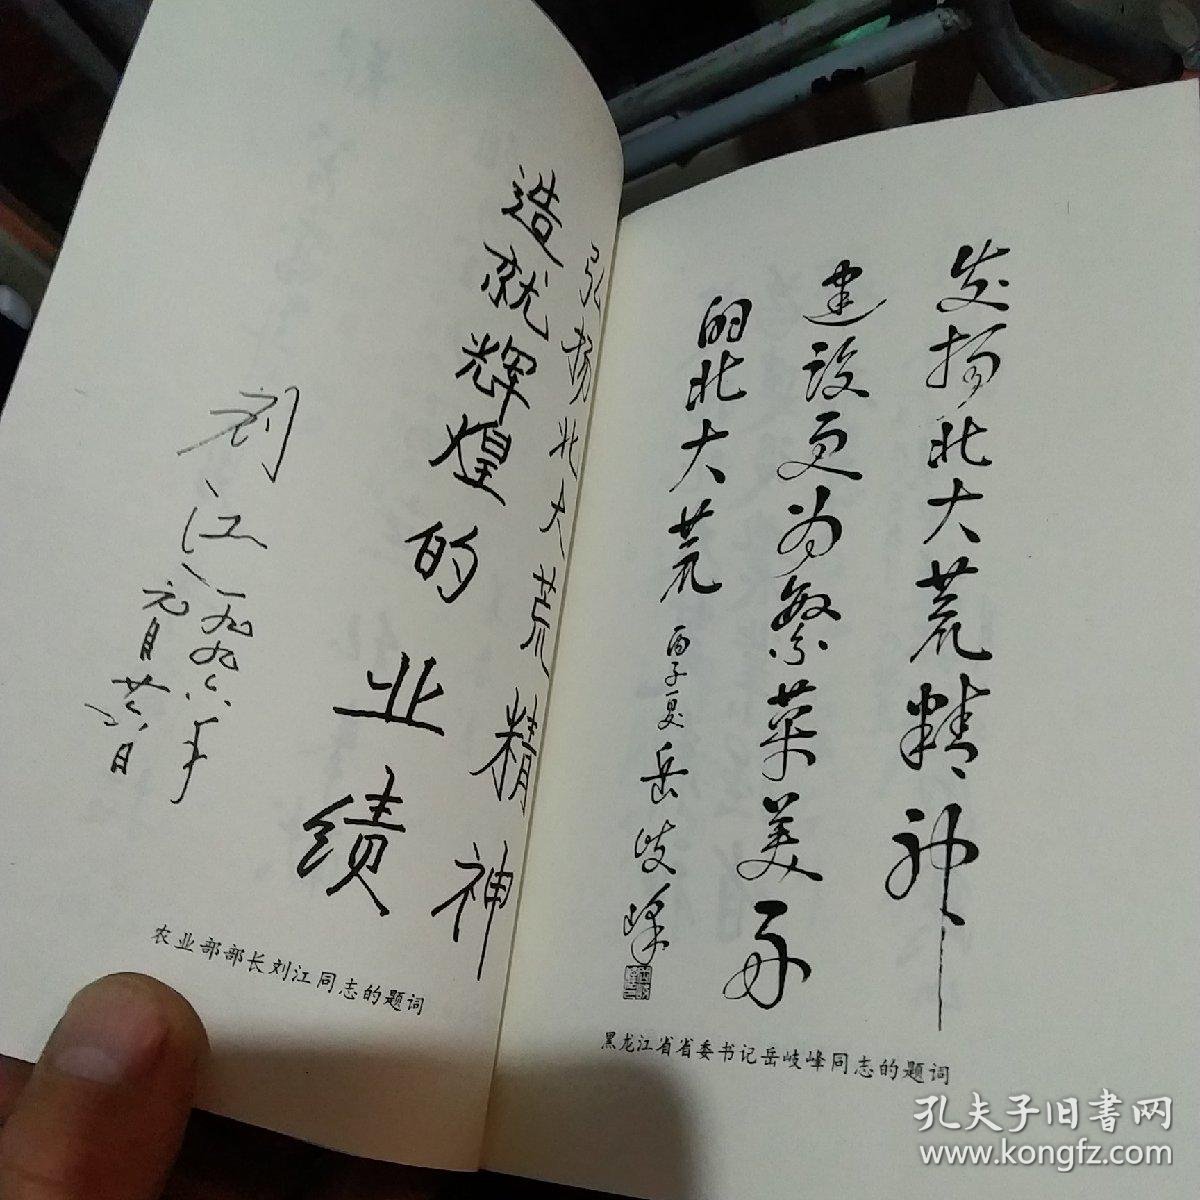 弘扬北大荒精神
造就辉煌的业绩
刘江
一九九六年
元月廿六日
农业部部长刘江同志的题词
发扬北大荒精神
建设更为繁荣美好
的北大荒
丙子夏 岳岐峰
黑龙江省省委书记岳岐峰同志的题词
孔夫子旧书网
www.kongfz.com